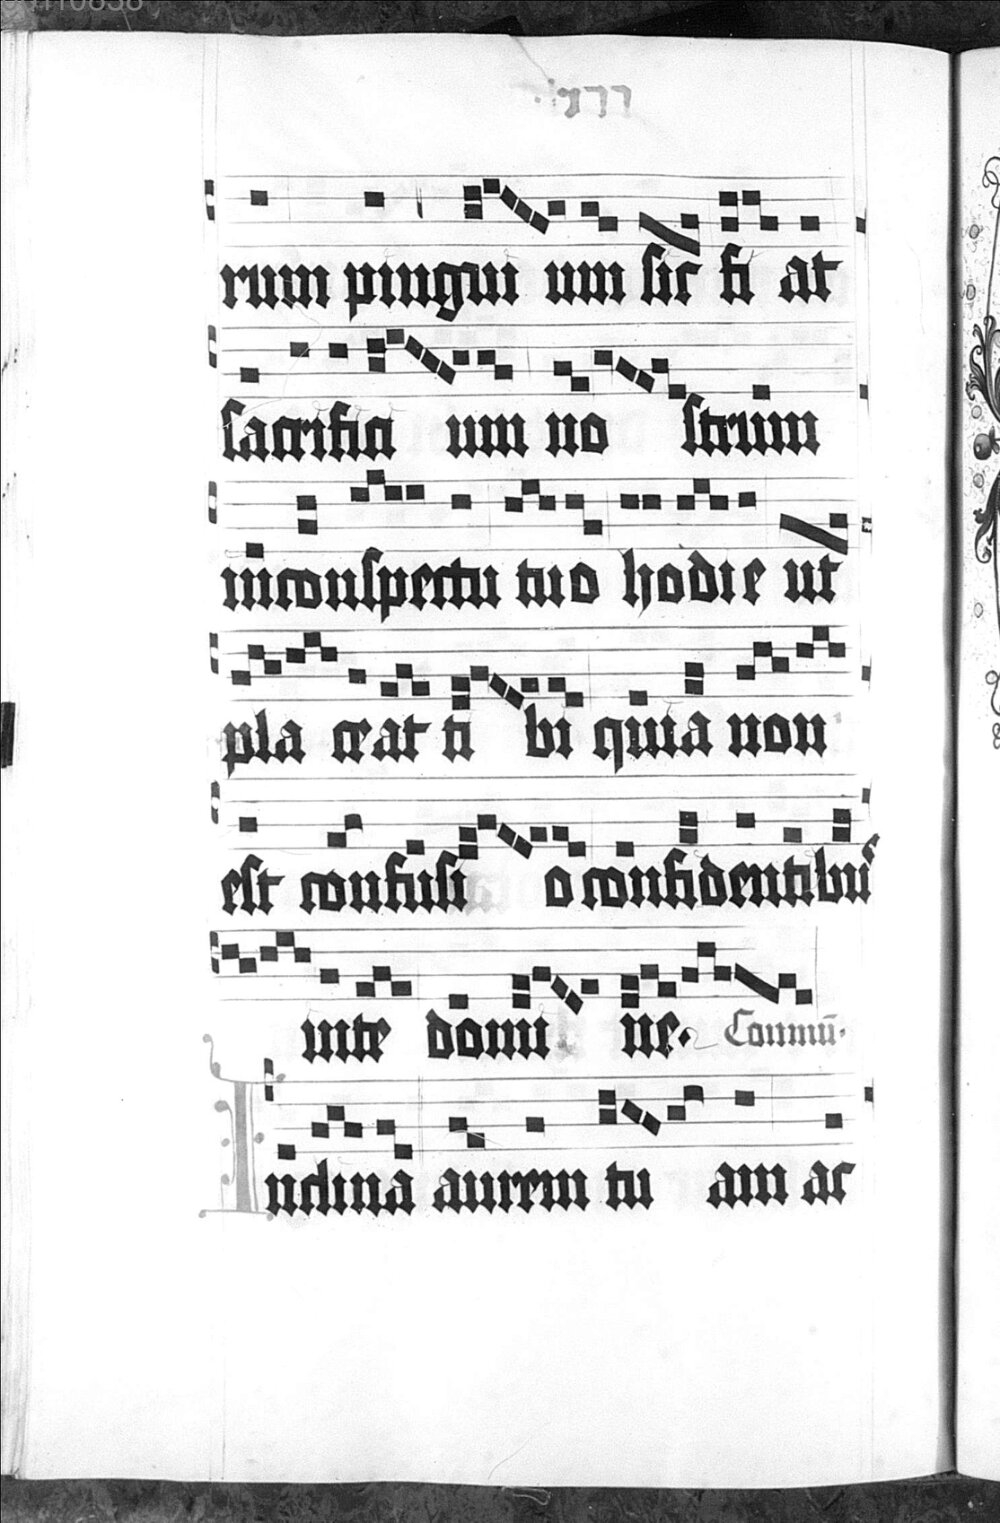 rum pingui um sic fi at
sacrifici um no strum
in conspectu tuo hodie ut
pla ceat ti bi quia non
est confusi o confidentibus
in te domi ne. Commū.
Inclina aurem tu am ac